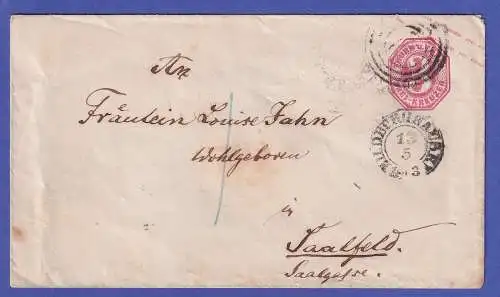 An
Fräulein Louise Jahn
Wohlgeboren
in
Saalfeld.
Saalgasse.
KREUZER
HILDBURGHAUSEN
13
5
3